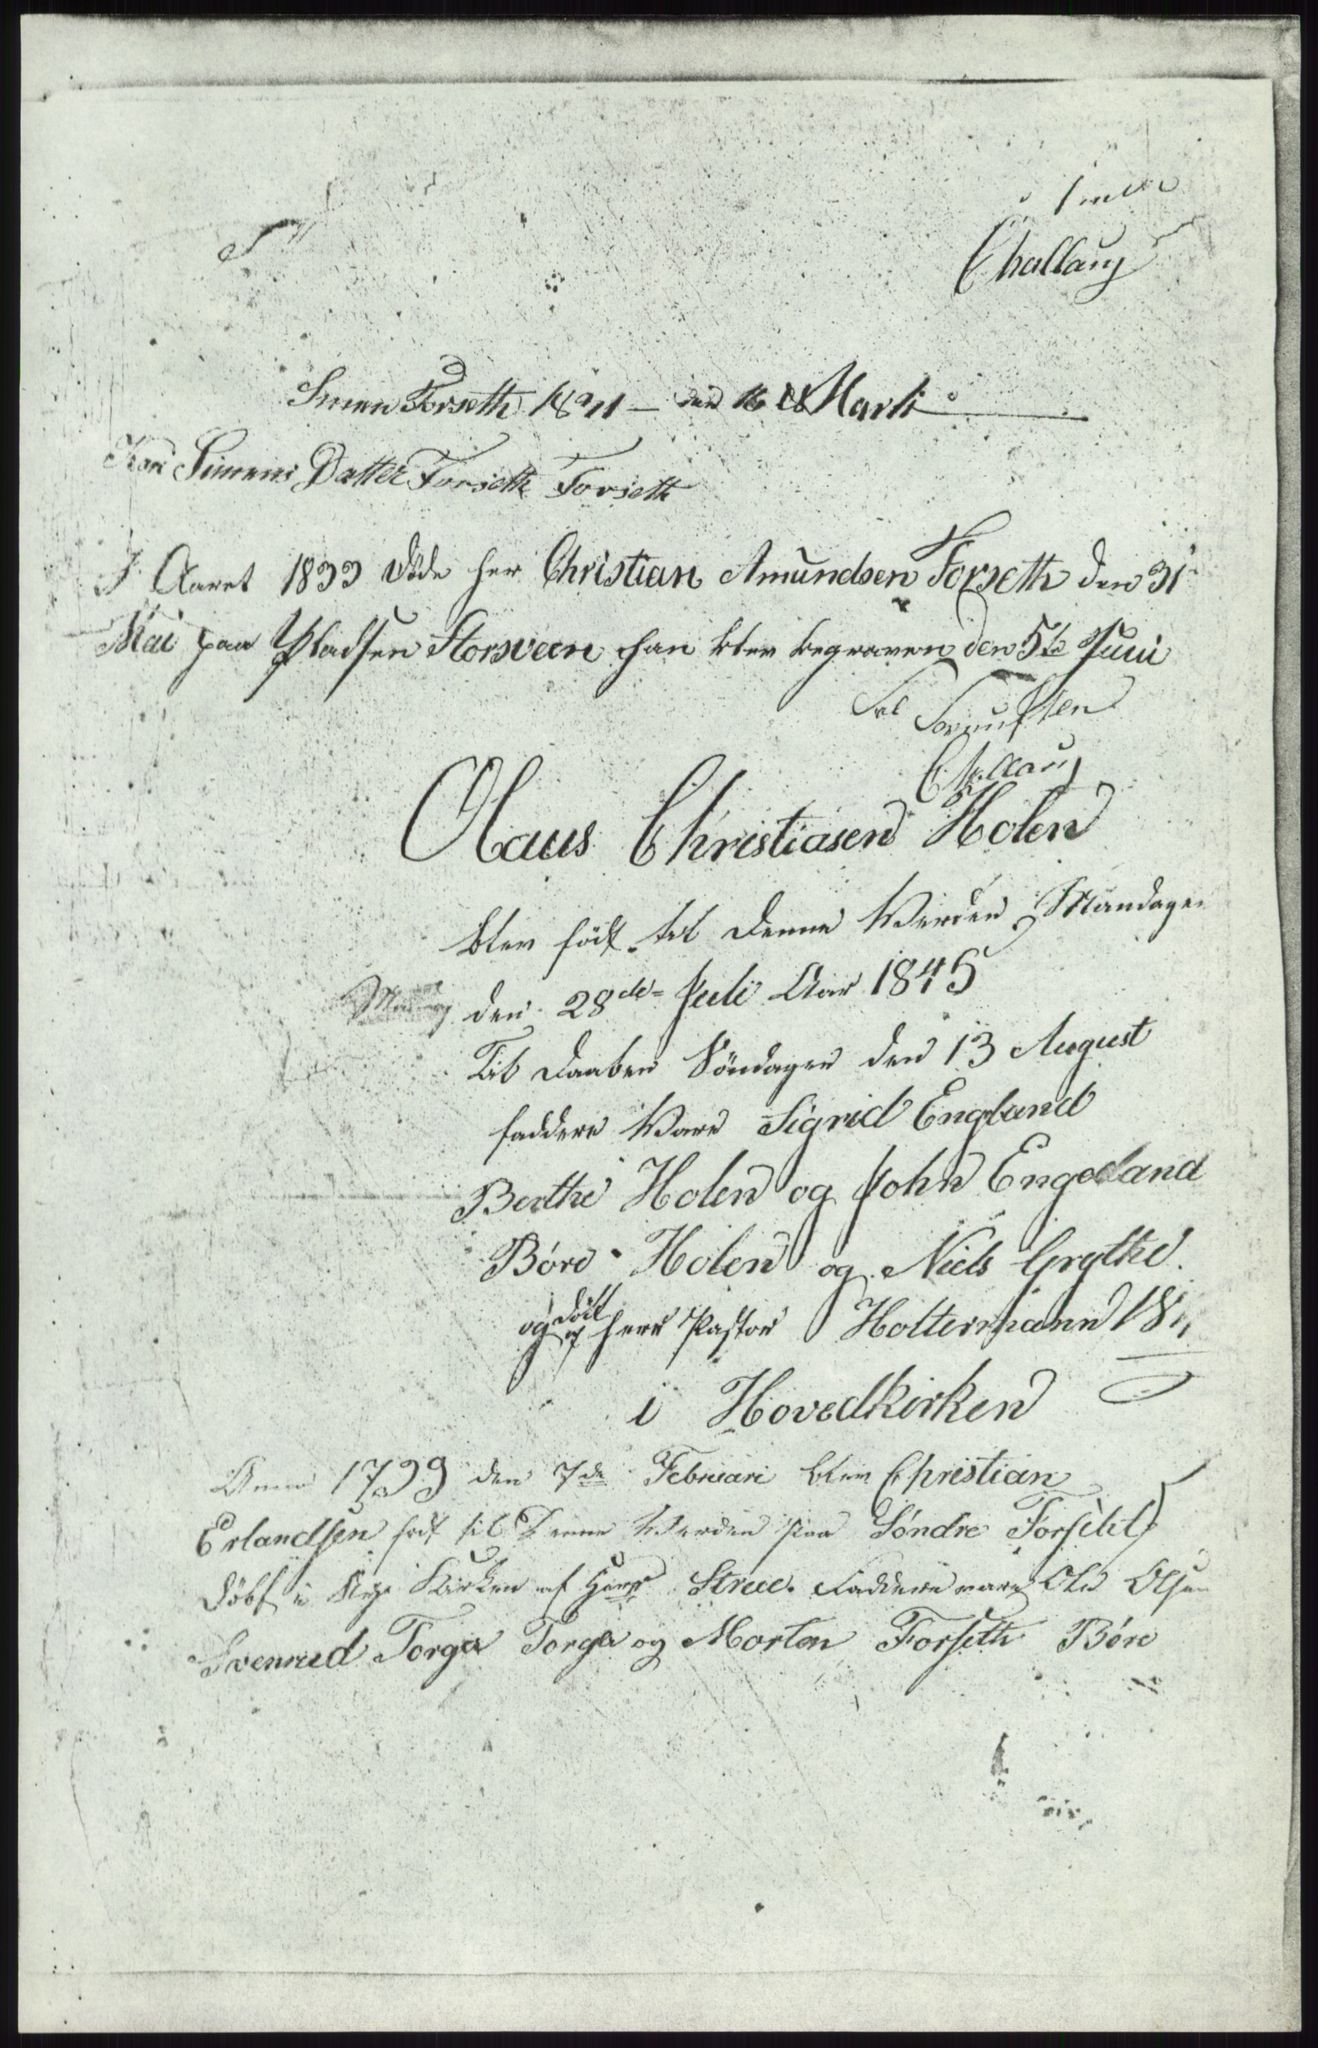 Challaug
Simen Forseth 1811 – den 16 Marti
Kari Simens Datter Forseth Forseth
I Aaret 1833 døde her Christian Amundsen Forseth den 31
Mai paa Pladsen Storsveen han blev begraven den 5te Juni
Challaug
Olaus Christiasen Holen
blev født til denne Verden Mandagen
den 28de Juli Aar 1845
Til Daaben Søndagen den 13 August
faddere Vare Sigrid Engeland
Berthe Holen og John Engeland
Børe Holen og Niels Grythe.
og døbt af herr Pastor Holtermann
i Hovedkirken
Anno 1799 den 7de Februari blev Christian
Erlandsen født til Denne Verden paa Søndre Forseth
døbt i Kirken af Herr Struc. Faddere vare Ole Olsen
Svenrud Torger Torger og Morten Forseth Børe